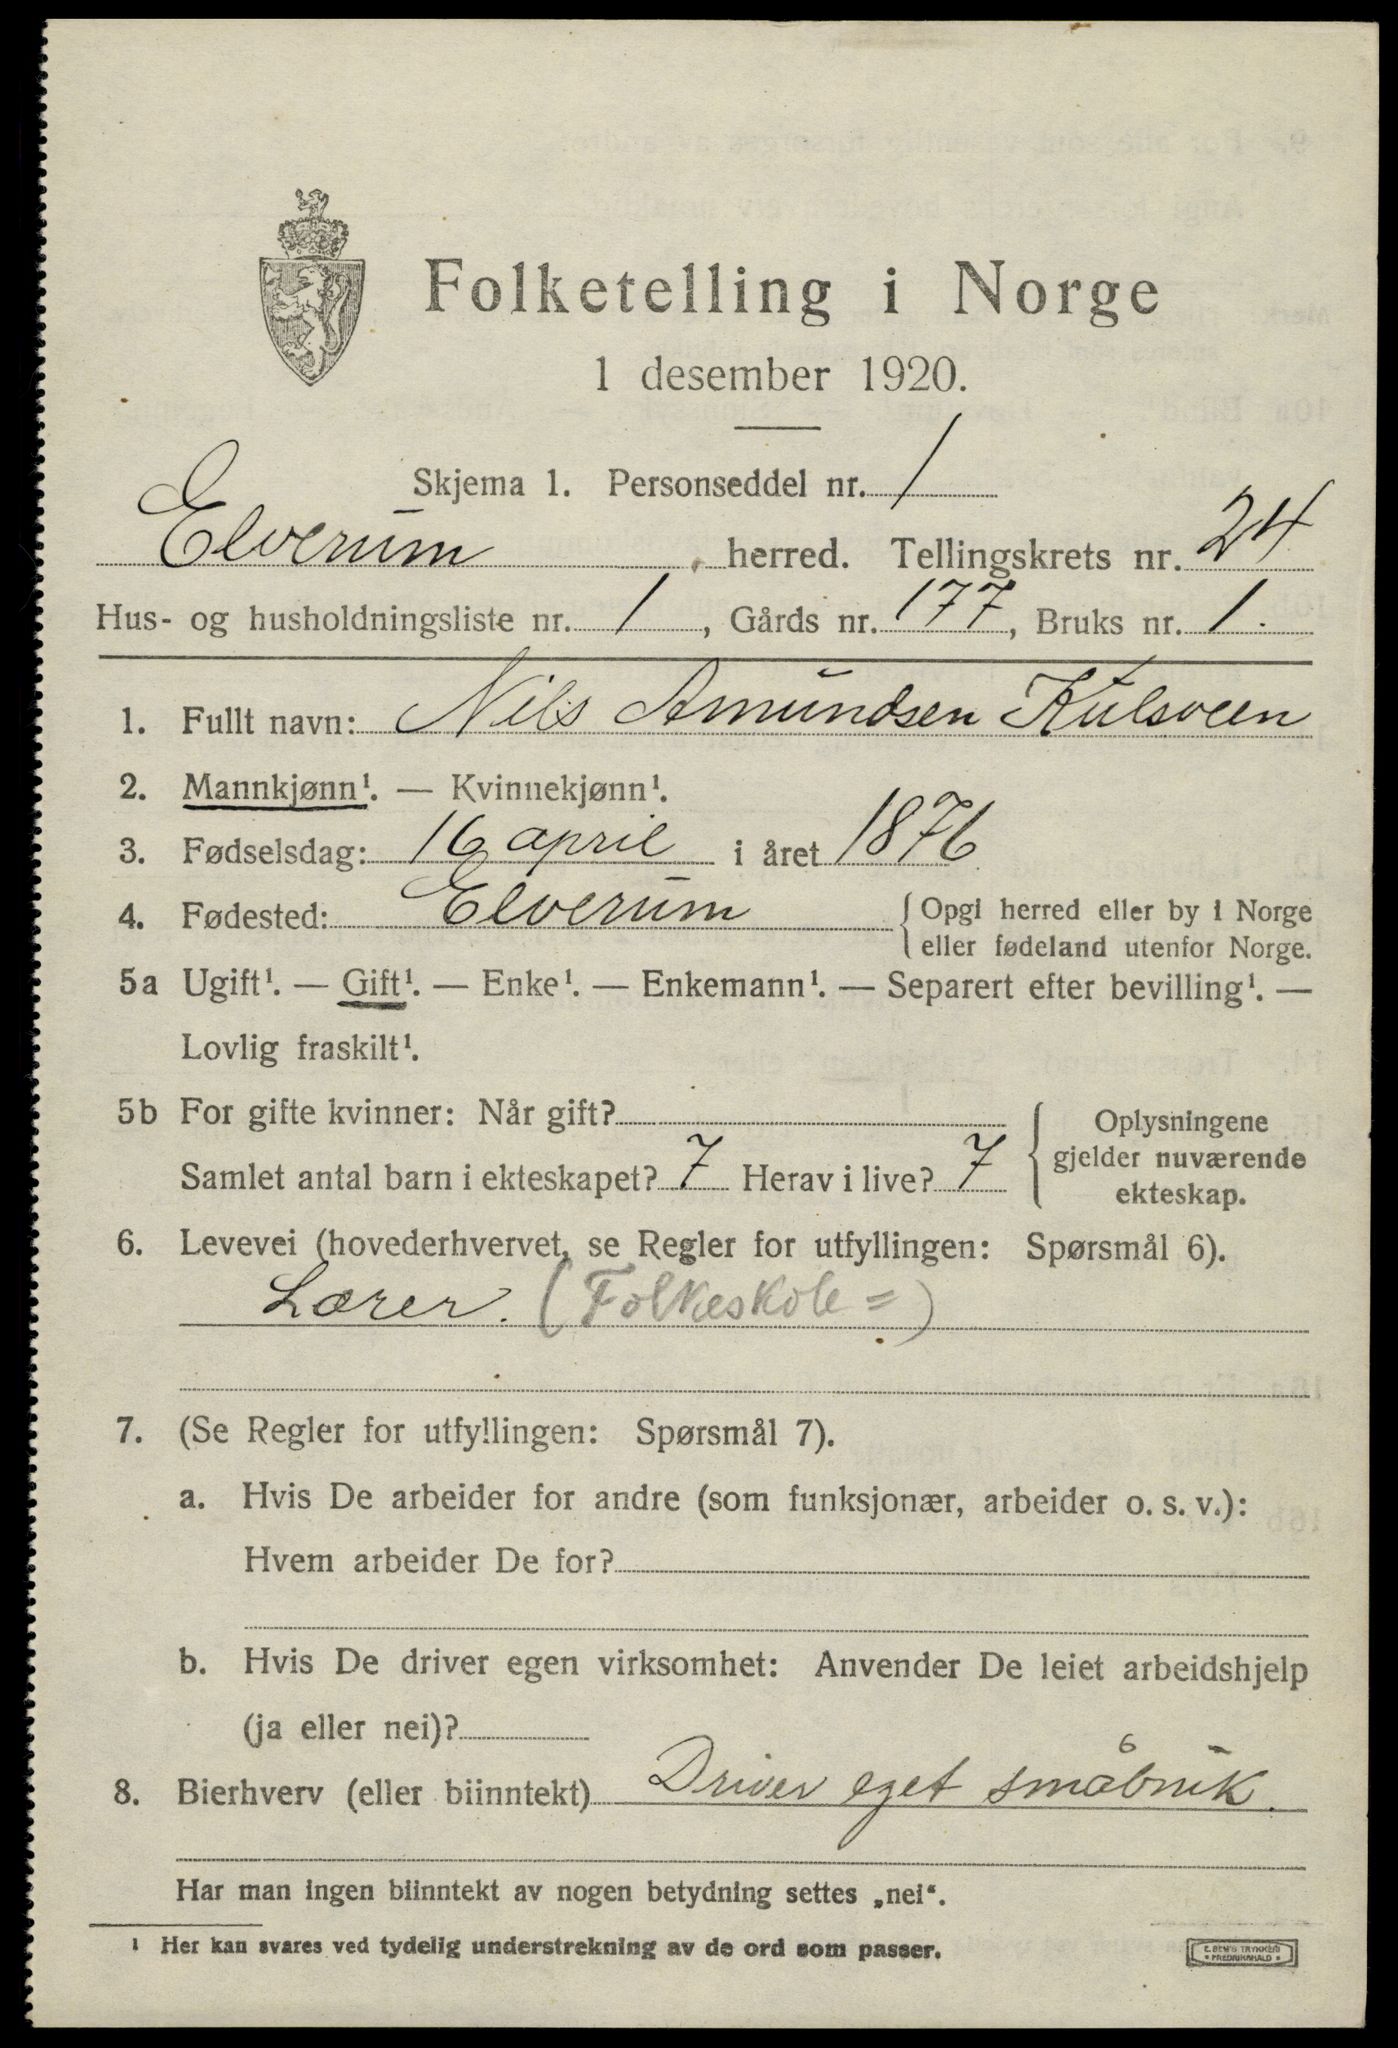 Folketelling i Norge
1 desember 1920.
Skjema 1. Personseddel nr. 1
Elverum herred. Tellingskrets nr. 24
Hus- og husholdningsliste nr. 1, Gårds nr. 177, Bruks nr. 1.
1. Fullt navn: Nils Amundsen Kulsveen
2. Mannkjønn¹. — Kvinnekjønn¹.
3. Fødselsdag: 16 april i året 1876
4. Fødested: Elverum {Opgi herred eller by i Norge
eller fødeland utenfor Norge.
5a Ugift¹. — Gift¹. — Enke¹. — Enkemann¹. — Separert efter bevilling¹. —
Lovlig fraskilt¹.
5b For gifte kvinner: Når gift?
Samlet antal barn i ekteskapet? 7 Herav i live? 7
Oplysningene
gjelder nuværende
ekteskap.
6. Levevei (hovederhvervet, se Regler for utfyllingen: Spørsmål 6).
Lærer. (Folkeskole=)
7. (Se Regler for utfyllingen: Spørsmål 7).
a. Hvis De arbeider for andre (som funksjonær, arbeider o. s. v.):
Hvem arbeider De for?
b. Hvis De driver egen virksomhet: Anvender De leiet arbeidshjelp
(ja eller nei)?
8. Bierhverv (eller biinntekt) Driver eget småbruk.
Har man ingen biinntekt av nogen betydning settes „nei“.
¹ Her kan svares ved tydelig understrekning av de ord som passer.
E. SEM'S TRYKKERI
FREDRIKSHALD